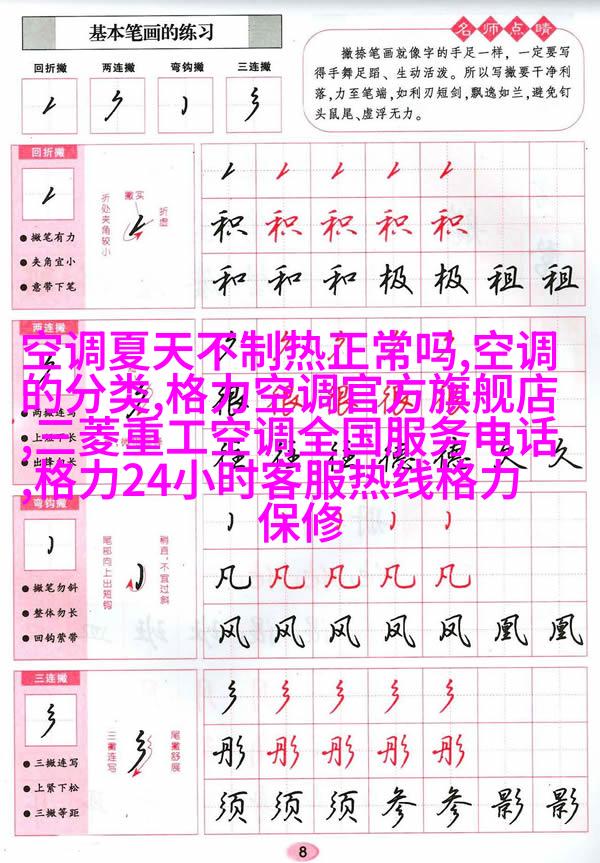 基本笔画的练习
名师点晴
撇捺笔画就像字的手足一样，一定要写
得手舞足蹈、生动活泼。所以写撇要干净利
落，力至笔端，如利刃短剑，飘逸如兰，避免钉
头鼠尾、虚浮无力。
回折撇 两连撇 弯钩撇 三连撇
回折撇
撇实
折虚
折处夹角较小
撇笔有力
夹角宜小
意带下笔
积 积 积 积 积
和 和 和 极 极 租 租
两连撇
空调夏天不制热正常吗,空调
的分类,格力空调官方旗舰店
,三菱重工空调全国服务电话
,格力24小时客服热线格力
保修
两撇连写
很 很 很 很 很
往 往 往 德 德 久 久
弯钩撇
稍直，不宜过斜
尾部向上出短钩
撇笔勿斜
整体勿长
回钩萦带
凡 凡 凡 凡 凡
风 风 风 风 风 凰 凰
三连撇
三撇连写
尾撇舒展
三撇连写
上紧下松
三撇等距
彤 彤 彤 彤 彤
须 须 须 参 参 影 影
8